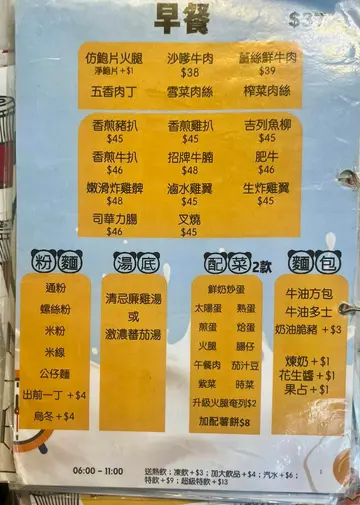 早餐 $37
仿鮑片火腿 沙嗲牛肉 薑絲鮮牛肉
淨鮑片+$1 $38 $39
五香肉丁 雪菜肉絲 榨菜肉絲
香煎豬扒 香煎雞扒 吉列魚柳
$45 $45 $45
香煎牛扒 招牌牛腩 肥牛
$46 $48 $46
嫩滑炸雞髀 滷水雞翼 生炸雞翼
$48 $45 $45
司華力腸 叉燒
$46 $45
粉麵 湯底 配菜2款 麵包
通粉
螺絲粉
米粉
米線
公仔麵
出前一丁+$4
烏冬+$4
清忌廉雞湯
或
激濃蕃茄湯
鮮奶炒蛋
太陽蛋 熟蛋
煎蛋 烚蛋
火腿 腸仔
午餐肉 茄汁豆
紫菜 時菜
升級火腿奄列$2
加配薯餅$8
牛油方包
牛油多士
奶油脆豬+$3
煉奶+$1
花生醬+$1
果占+$1
06:00-11:00
送熱飲;凍飲+$3;加大飲品+$4;汽水+$6;
特飲+$9;超級特飲+$13